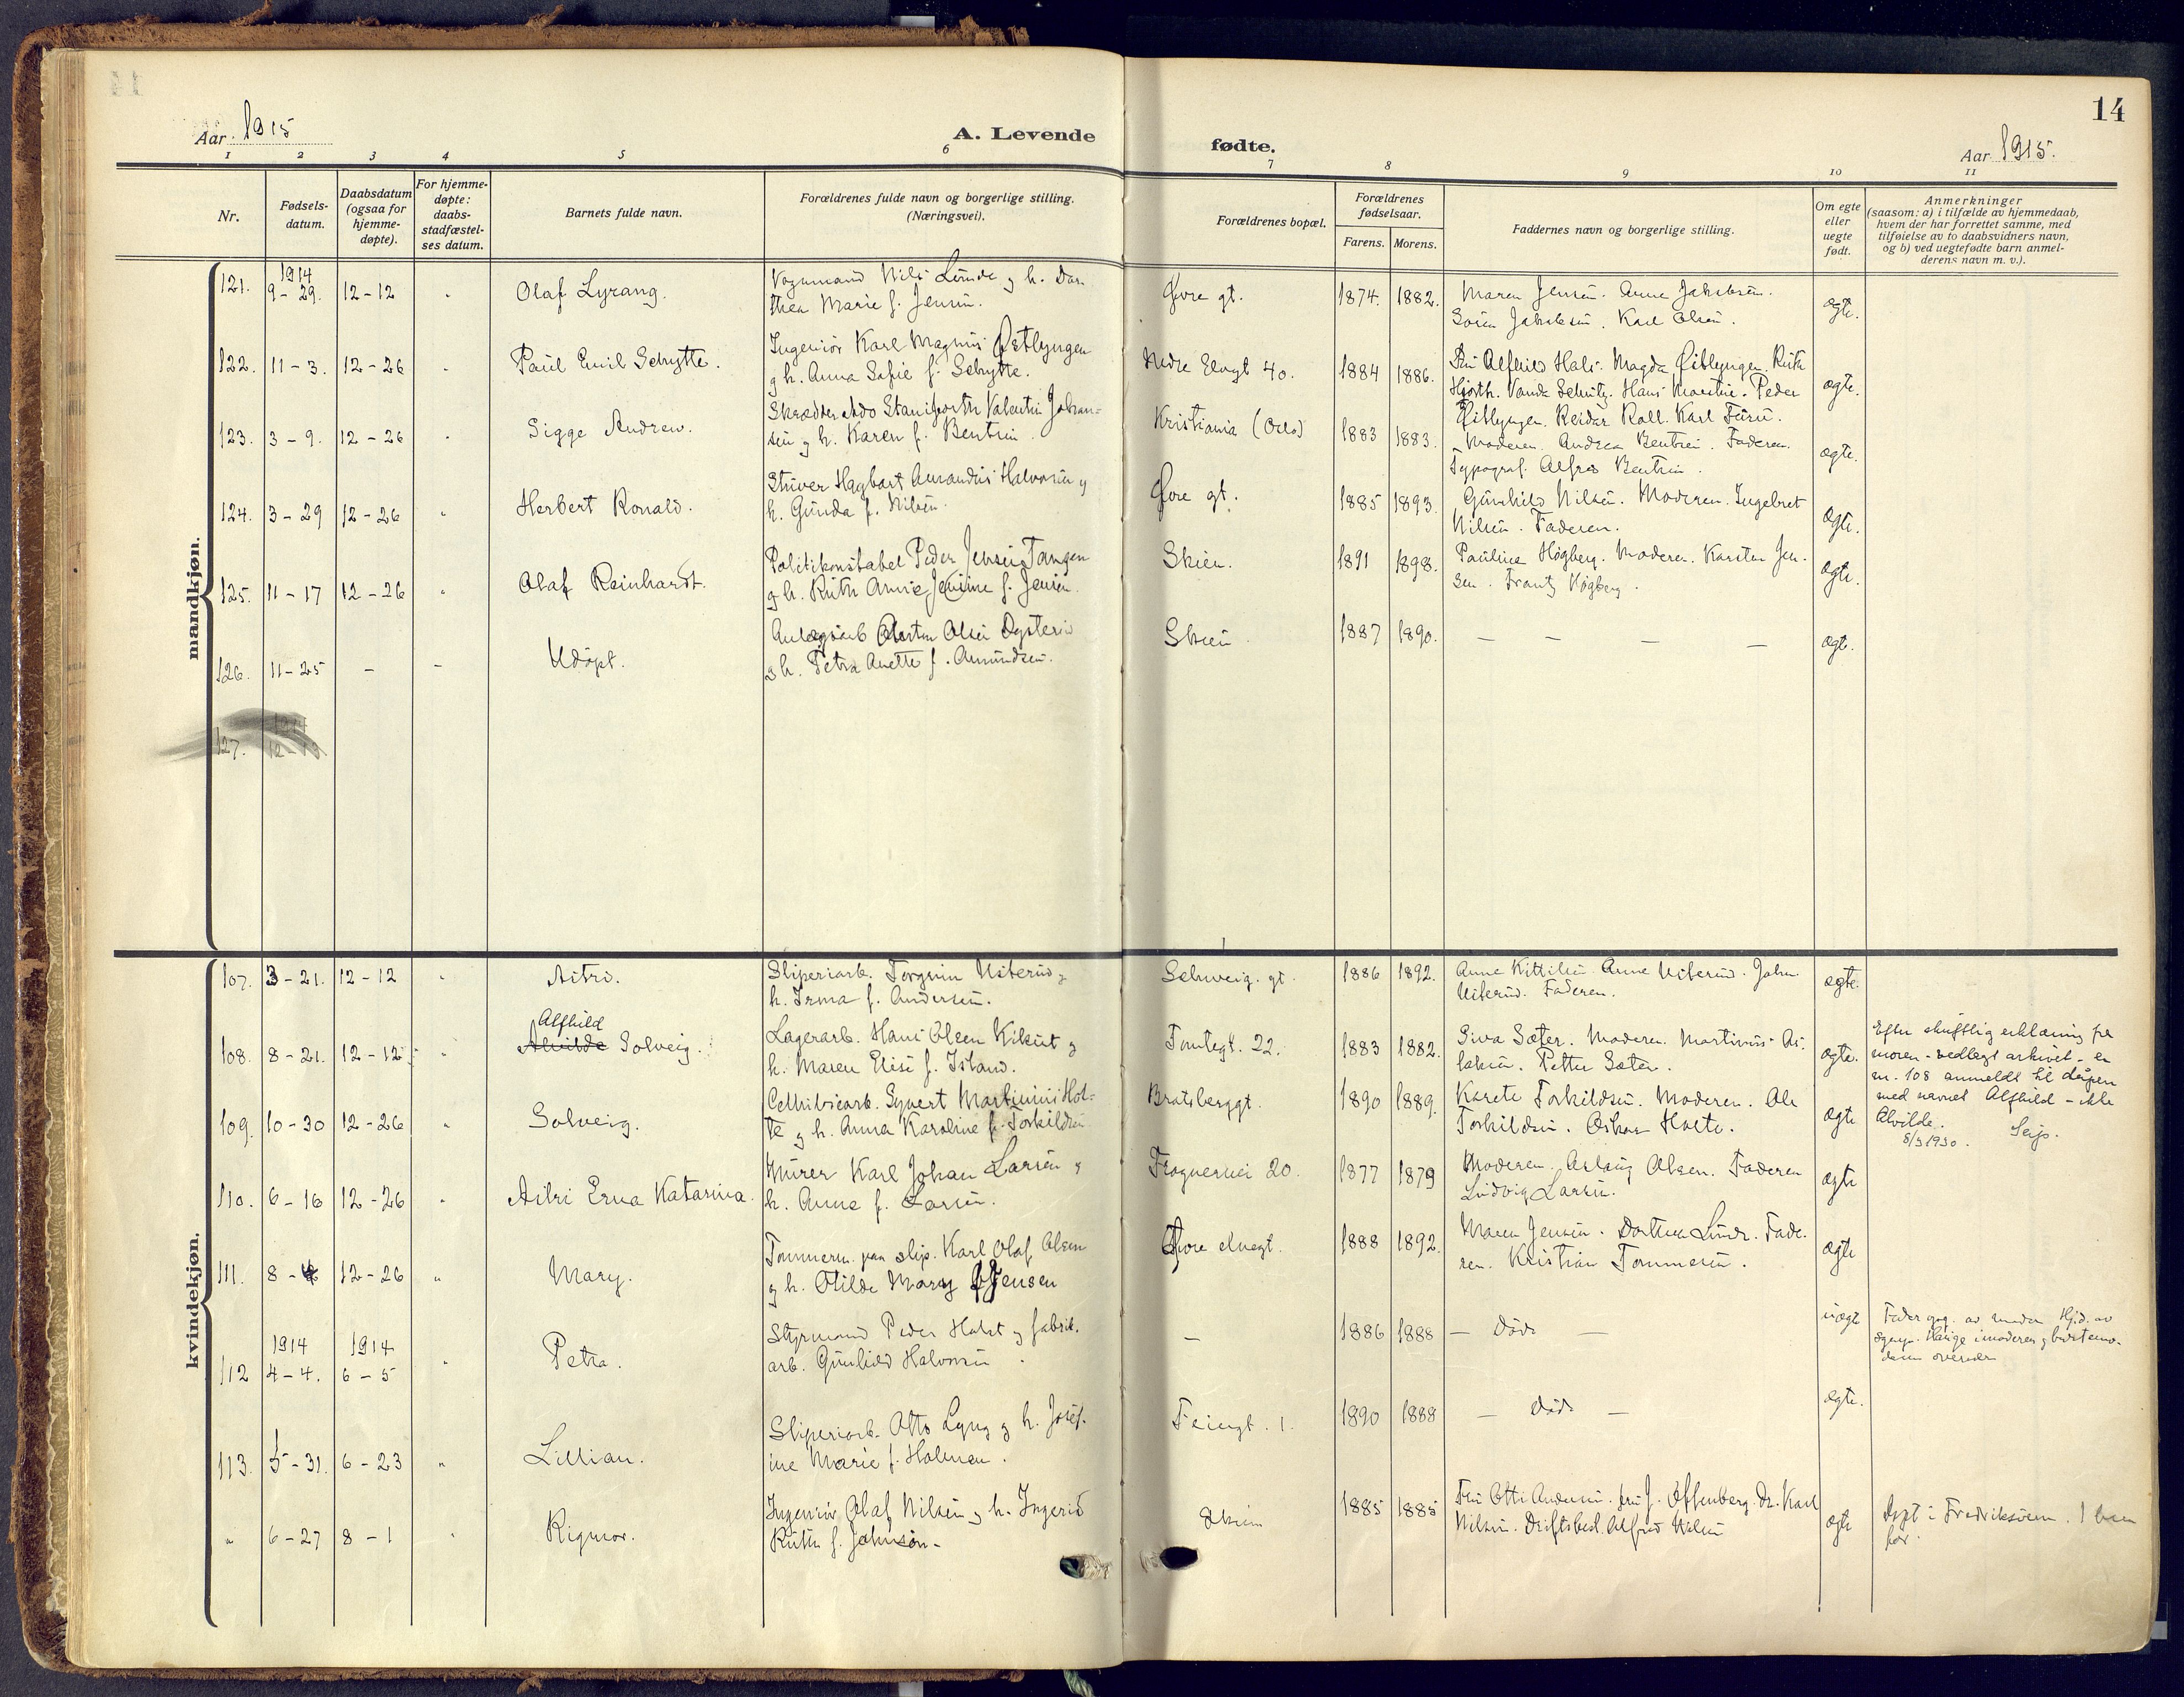 14
Aar 1915
A. Levende
fødte.
Aar 1915.
1 2 3 4 5 6 7 8 9 10 11
Nr.
Fødsels-
datum.
Daabsdatum
(ogsaa for
hjemme-
døpte).
For hjemme-
døpte:
daabs-
stadfæstel-
ses datum.
Barnets fulde navn.
Forældrenes fulde navn og borgerlige stilling.
(Næringsvei).
Forældrenes bopæl.
Forældrenes
fødselsaar.
Farens. Morens.
Faddernes navn og borgerlige stilling.
Om egte
eller
uegte
født.
Anmerkninger
(saasom: a) i tilfælde av hjemmedaab,
hvem der har forrettet samme, med
tilføielse av to daabsvidners navn,
og b) ved uegtefødte barn anmel-
derens navn m. v.).
mandkjøn.
121. 1914 9-29. 12-12 Olaf Lyrang.
Vognmand Nils Lunde g h. Dor-
thea Marie f. Jensen.
Øvre gt. 1874. 1882.
Maren Jensen. Anna Jakobsen.
Søren Jakobsen. Karl Olsen.
ægte.
122. 11-3. 12-26 Paul Emil Schytte.
Ingeniør Karl Magnus Østlyngen
g h. Anna Sofie f. Schytte.
Nedre Elvegt 40. 1884 1886.
Magda Østlyngen. Ruth
Hjorth. Peder
Østlyngen. Reidar Roll. Karl
ægte.
123. 3-9. 12-26 Sigge Andrew.
Skrædder Valentin Johan-
sen g h. Karen f. Bentsen.
Kristiania (Oslo) 1883 1883.
Moderen. Andrea Bentsen. Faderen.
Typograf. Alfred Bentsen.
ægte.
124. 3-29 12-26 Herbert Ronald.
Stuver Hagbart Amandus Halvorsen g
h. Gunda f. Nilsen.
Øvre gt. 1885 1893.
Gunhild Nilsen. Moderen. Ingebret
Nilsen. Faderen.
ægte.
125. 11-17 12-26 Olaf Reinhardt.
Politikonstabel Peder Jensen Tangen
g h. Ruth Annie Jensine f. Jensen.
Skien. 1891 1898.
Pauline Högberg. Moderen. Karsten Jen-
sen. Frantz Högberg.
ægte.
126. 11-25 - - Udøpt.
Anlægsarb. Olsen
g h. Petra Anette f. Amundsen.
Skien 1887 1890. - - - -
ægt.
127. 1914 12-13
kvindekjøn.
107. 3-21. 12-12 Astri.
Sliperiarb. Torgrim g
h. Irma f. Andersen.
Schweig. gt. 1886 1892.
Anne Kittilsen. Anne John
Faderen.
ægte.
Alfhild
108. 8-21. 12-12 Alvilde Solveig.
Lagerarb. Hans Olsen Kikut g
h. Maren Elise f. Island.
Tomtegt. 22. 1883 1882.
Siva Sæter. Moderen. Martinus As-
laksen. Petter Sæter.
ægte.
Efter skriftlig erklæring fra
moren - vedlagt arkivet - er
nr. 108 anmeldt til dåpen
med navnet Alfhild - ikke
Alvilde.
8/3 1930. Seip.
109. 10-30 12-26 Solveig.
Cellulosearb. Syvert Martinius Hol-
te g h. Anna Karoline f. Torkildsen
Bratsberggt. 1890 1889.
Karete Torkildsen. Moderen. Ole
Torkildsen. Oskar Holte.
ægte
110. 6-16 12-26 Astri Erna Katarina.
Murer Karl Johan Larsen g
h. Anna f. Larsen.
Frognervei 20. 1877 1879
Moderen. Aslaug Olsen. Faderen
Ludvig Larsen.
ægte
111. 8-4 12-26 Mary.
Tømmerm. paa slip. Karl Olaf Olsen
g h. Otilde Mary f. Jensen
Øvre elvegt. 1888 1892.
Maren Jensen. Dorthea Lunde. Fade-
ren. Kristian Tommesen.
ægte
112 1914 4-4. 1914 6-5 Petra.
Styrmand Peder Holst g fabrik-
arb. Gunhild Halvorsen.
- 1886 1888 - Døde -
uægt
Fader opg. av moder
113. 5-31. 6-23 Lillian.
Sliperiarb. Otto Lyng g h. Josef-
ine Marie f. Holmen.
Feiergt. 1. 1890 1888 - Døde -
ægte.
" 6-27 8-1 Rigmor.
Ingeniør Olaf Nilsen g h. Ingerid
Ruth f. Johnson.
Skien 1885 1885
Fru Otti Andersen. fru J. Offenberg. Dr. Karl
Nilsen. Driftsbest. Alfred Nilsen
ægte
Døpt i Fredriksværn.